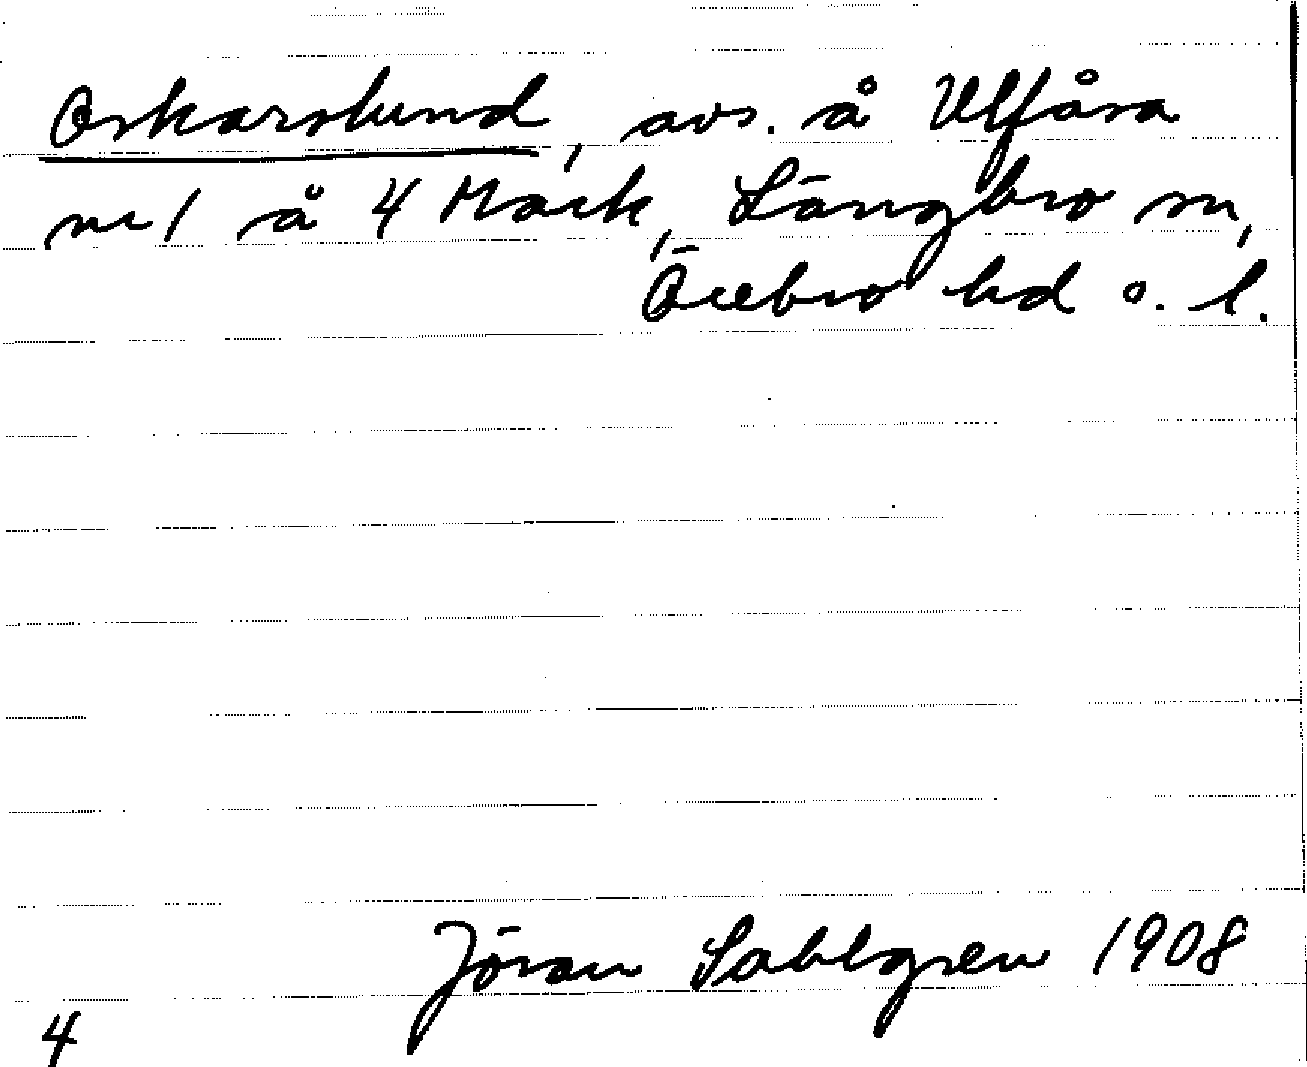 Oskarslund, avs. å Ulfåsa
nr 1 å 4 Mark, Längbro sn,
Örebro hd o. l.
Jöran Sahlgren 1908
4